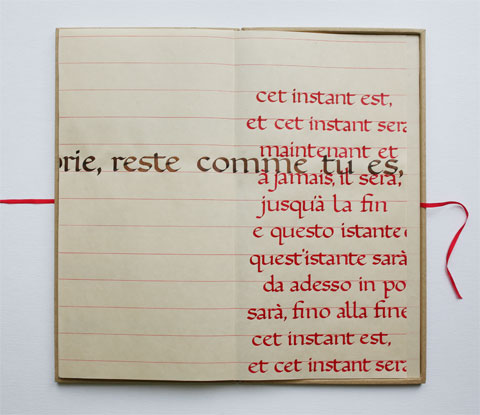 cet instant est,
et cet instant sera
maintenant et
orie, reste comme tu es,
à jamais, il sera,
jusqu'à la fin
e questo istante e
quest'istante sarà
da adesso in po
sarà, fino alla fine
cet instant est,
et cet instant sera